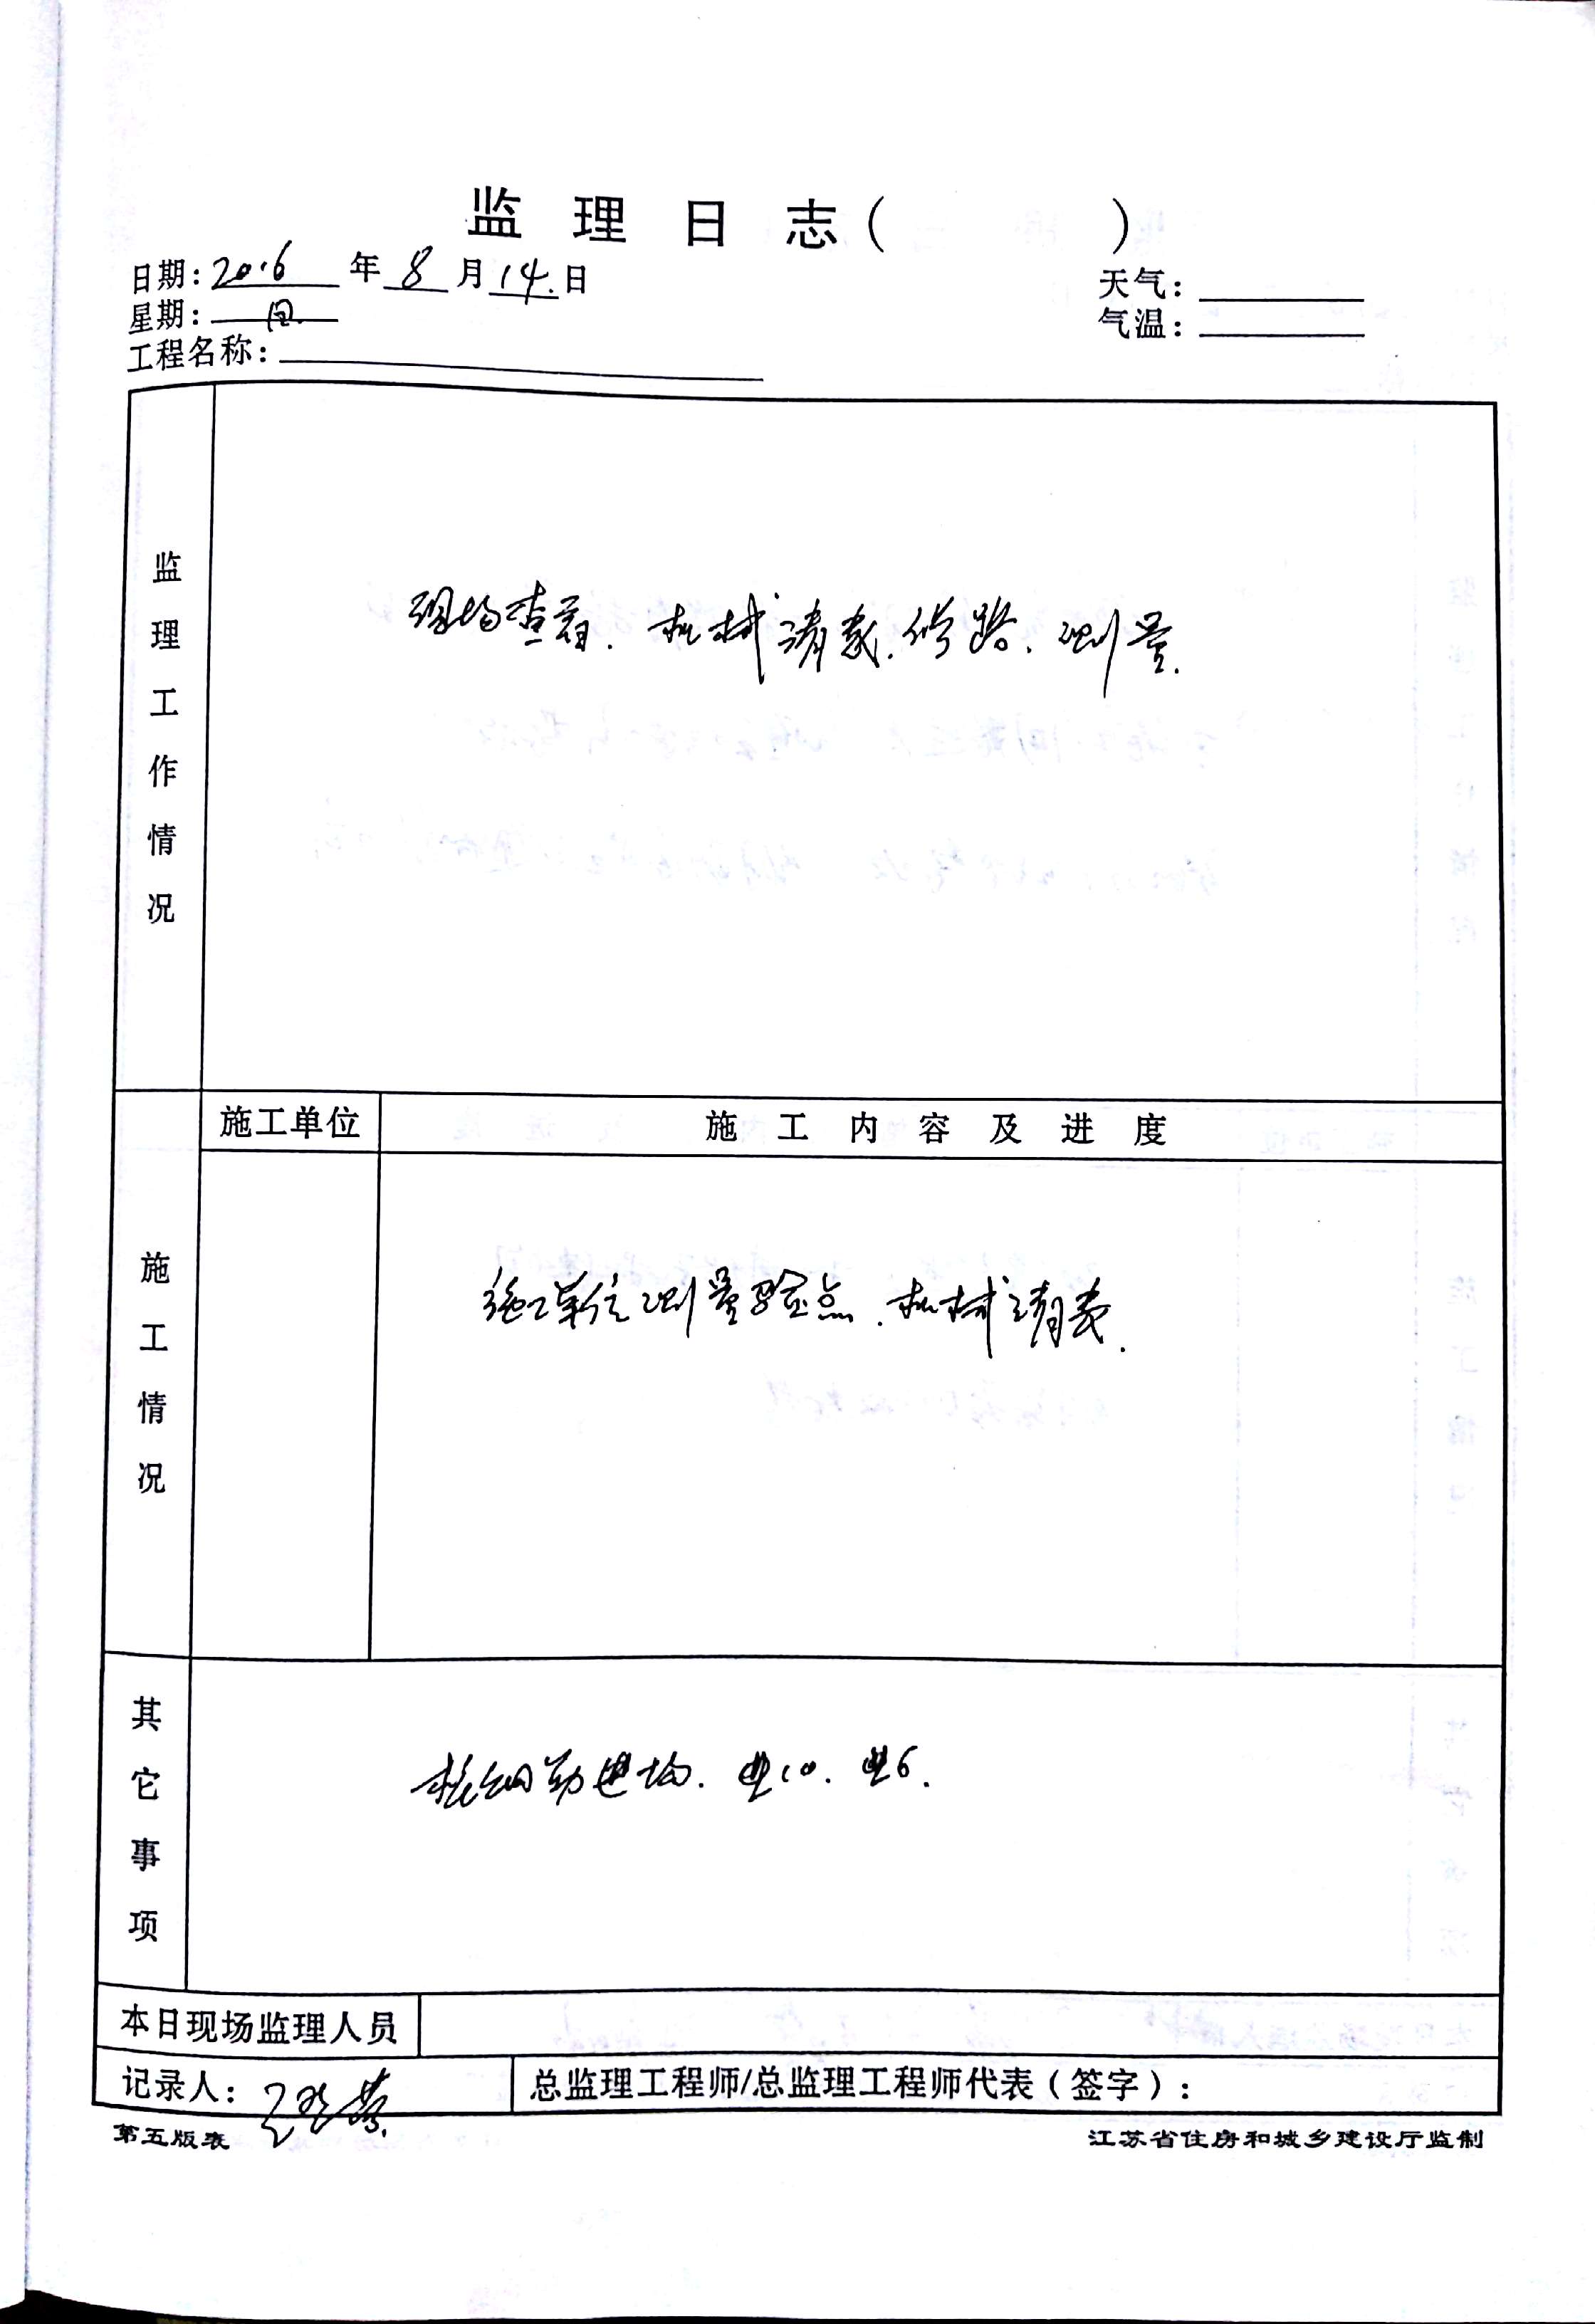 监 理 日 志 (          )
日期: 2016 年 8 月 14. 日
天气:
星期:
气温:
工程名称:
监理工作情况
现场查看. 机械清表. 修路. 测量.
施工单位
施 工 内 容 及 进 度
施工情况
施工单位测量验点. 机械清表.
其它事项
进场. 10. 6.
本日现场监理人员
记录人:
总监理工程师/总监理工程师代表(签字):
第五版表
江苏省住房和城乡建设厅监制